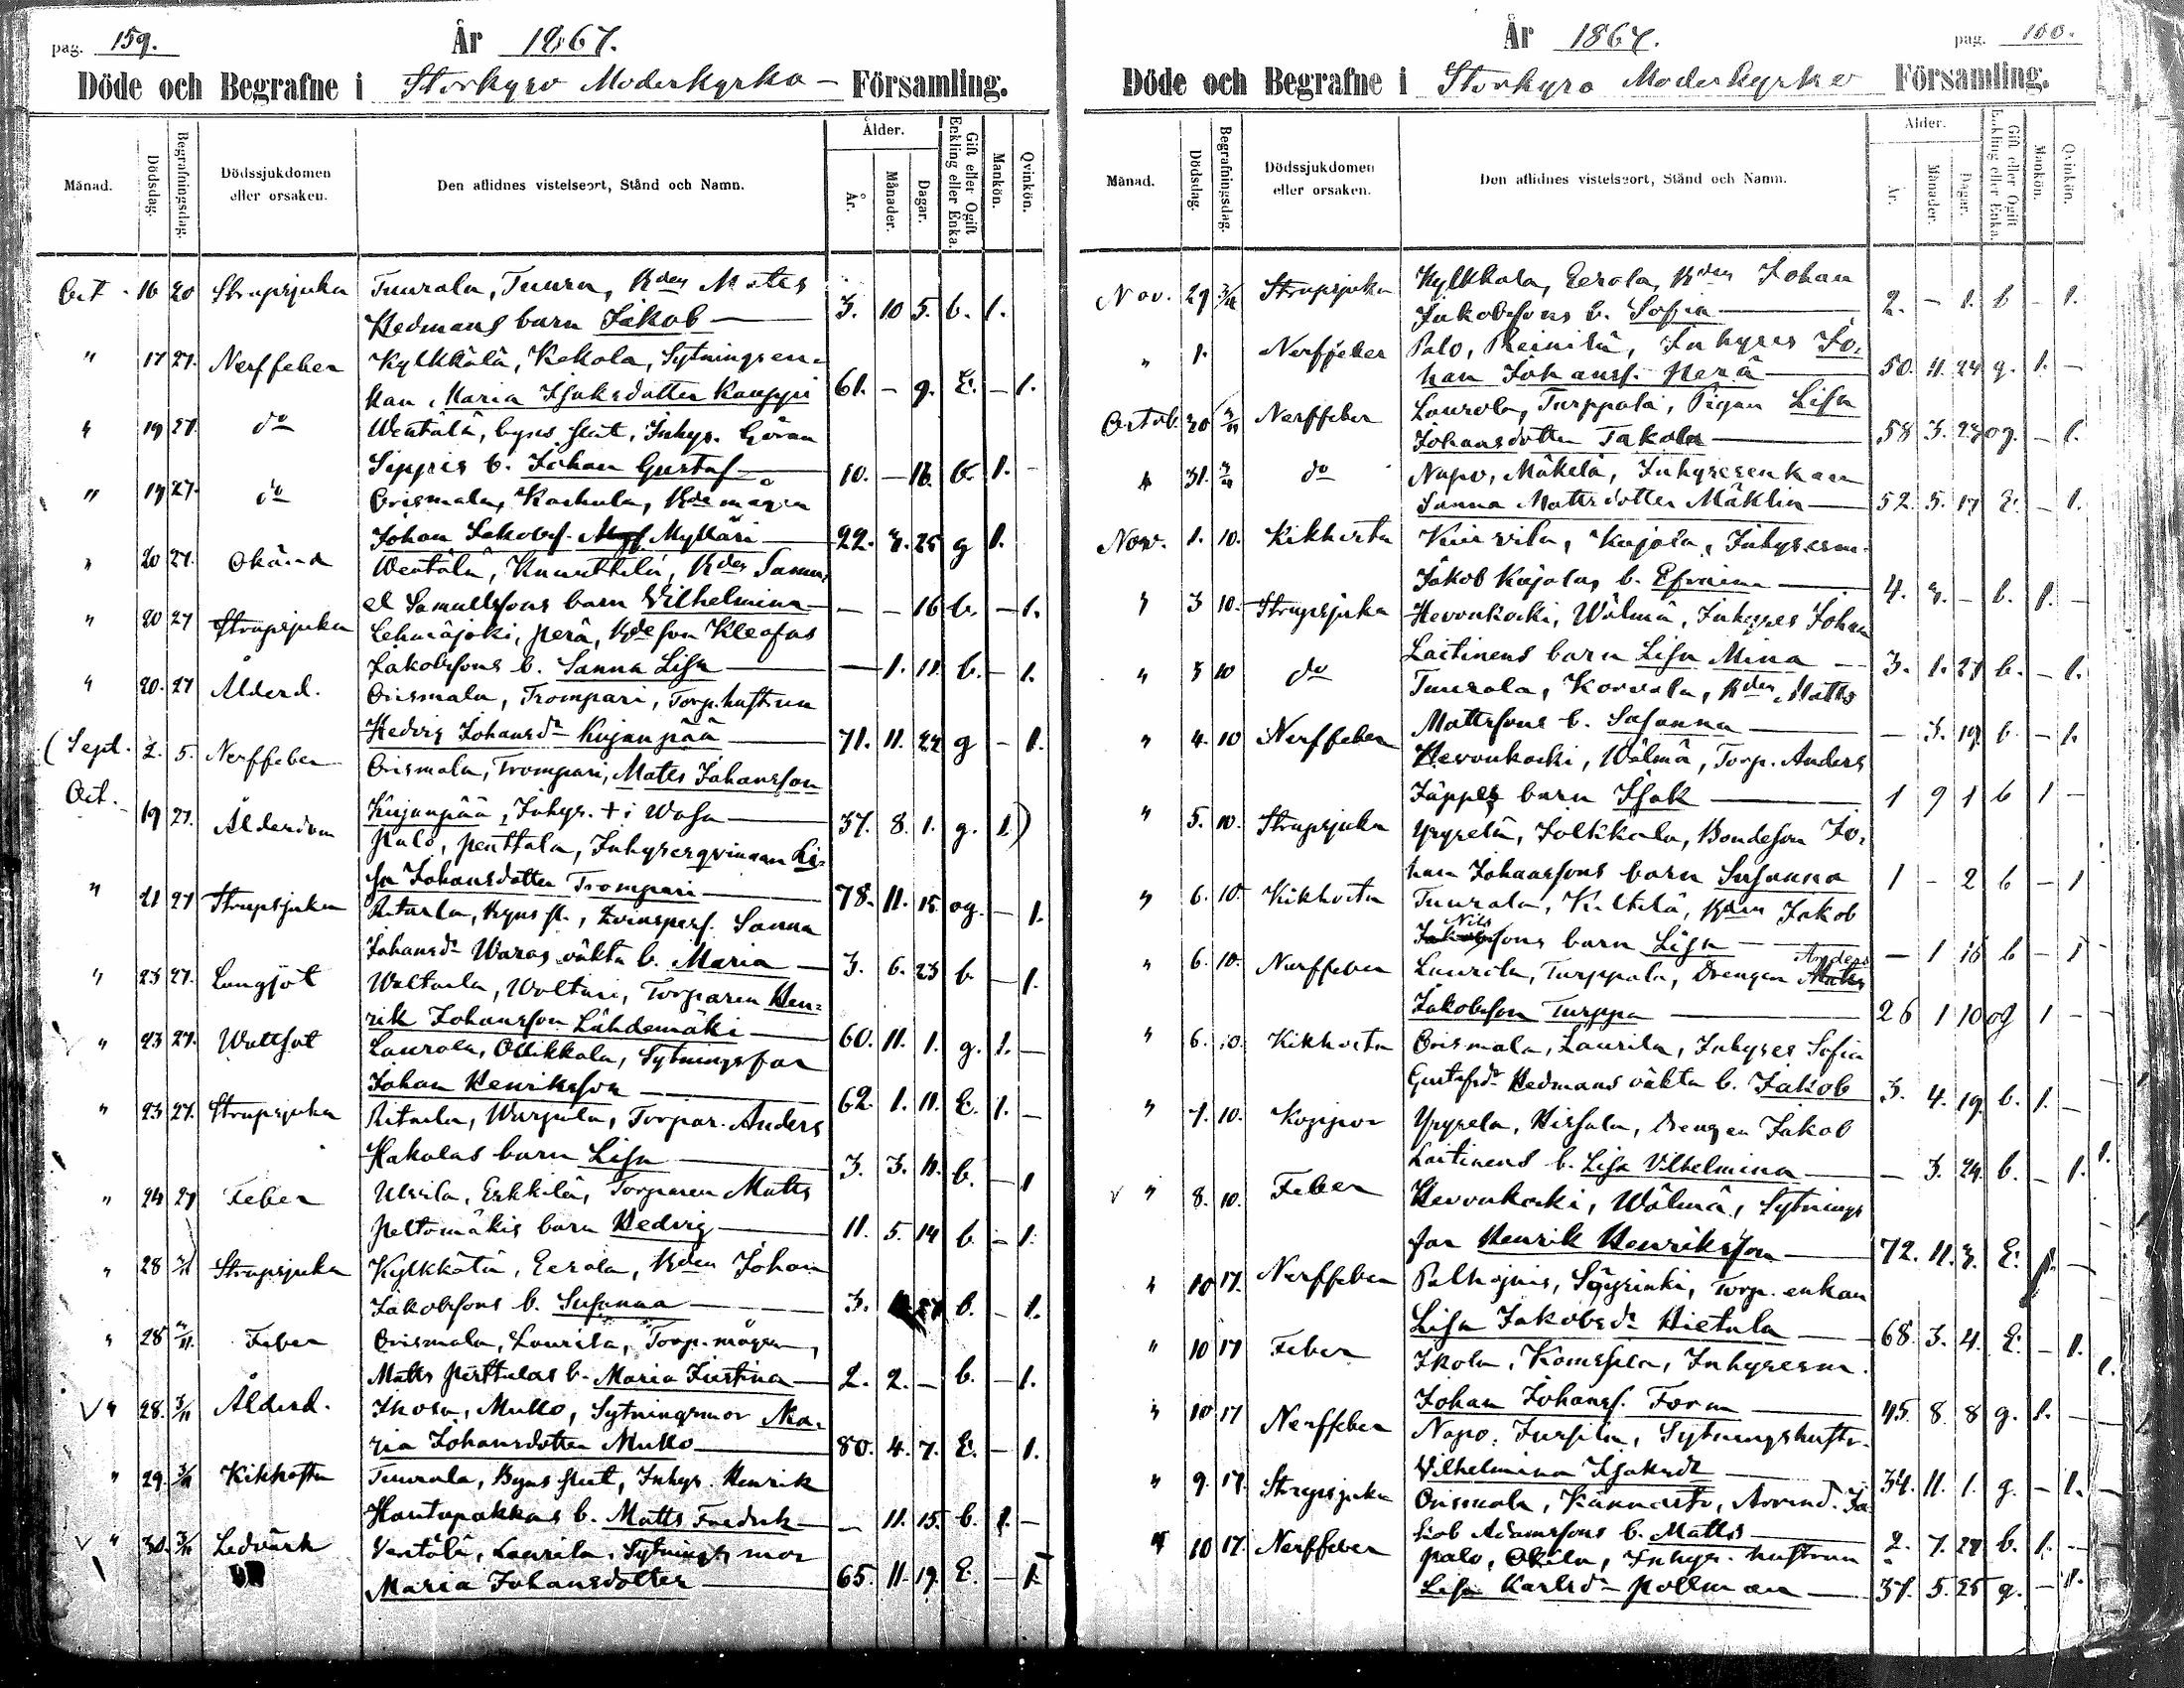 pag. 159.
År 1867.
Döde och Begrafne i Storkyro Moderkyrko- Församling.
Månad. Dödsdag. Begrafningsdag. Dödssjukdomen eller orsaken. Den aflidnes vistelseort, Stånd och Namn. Ålder. År. Månader. Dagar. Gift eller Ogift Enkling eller Enka. Mankön. Qvinkön.
Oct. 16 20 Strupsjuka Tuurala, Tuura, Bden Matts
Hedmans barn Jakob 3. 10 5. b. 1.
" 17 27. Nerffeber Kylkkälä, Kekola, Sytningsen-
kan, Maria Isaksdotter Kauppi 61. - 9. E. - 1.
" 19 27 do Wentälä, byns slut, Inhys. Göran
Sippris b. Johan Gustaf 10. - 16. b. 1. -
" 19 27. do Orismala, Kaukula, Bde mågen
Johan Jakobss. Mylläri 22. 3. 25 g 1.
" 20 27. Okänd Wentälä, Knuuttila, Bden Samu-
el Samuelssons barn Vilhelmina - - 16 b. - 1.
" 20 27 Strupsjuka Lehmäjoki, Perä, Bde son Kleofas
Jakobssons b. Sanna Lisa - 1. 11. b. - 1.
" 20. 27 Ålderd. Orismala, Trompari, Torp. hustrun
Hedvig Johansdr Kujanpää 71. 11. 22 g - 1.
(Sept. 2. 5. Nerffeber Orismala, Trompari, Matts Johansson
Kujanpää, Inhys. + i Wasa 37. 8. 1. g. 1.)
Oct. 19 27. Ålderdom Palo, Penttala, Inhyseqvinnan Li-
sa Johansdotter Trompari 78. 11. 15. og. - 1.
" 21 27 Strupsjuka Ritaala, Byns sl., Qvinspers. Sanna
Johansdr Waras oäkta b. Maria 3. 6. 23 b. - 1.
" 23 27. Lungsot Waltaala, Waltari, Torparen Hen-
rik Johansson Lähdemäki 60. 11. 1. g. 1. -
" 23 27. Wattsot Laurola, Ollikkala, Sytningsfar
Johan Henriksson 62. 1. 11. E. 1. -
" 23 27. Strupsjuka Ritaala, Warpula, Torpar. Anders
Hakolas barn Lisa 3. 3. 11. b. - 1
" 24 27 Feber Ulvila, Erkkilä, Torparen Matts
Peltomäkis barn Hedvig 11. 5. 14 b. - 1.
" 28 3/11 Strupsjuka Kylkkälä, Eerola, Bden Johan
Jakobssons b. Susanna 3. 27 b. - 1.
" 28 3/11. Feber Orismala, Laurila, Torp. mågen,
Matts Perttulas b. Maria Justina 2. 2. - b. - 1.
V " 28. 3/11 Ålderd. Ikola, Mullo, Sytningsmor Ma-
ria Johansdotter Mullo 80. 4. 7. E. - 1.
" 29. 3/11 Kikhosta Tuurala, Byns slut, Inhys. Henrik
Hautapakkas b. Matts Fredrik - 11. 15. b. 1. -
V " 30. 3/11 Ledvärk Ventälä, Laurila, Sytningsmor
Maria Johansdotter 65. 11. 19. E. - 1.
År 1867.
pag. 160.
Döde och Begrafne i Storkyro Moderkyrko Församling.
Månad. Dödsdag. Begrafningsdag. Dödssjukdomen eller orsaken. Den aflidnes vistelseort, Stånd och Namn. Ålder. År. Månader. Dagar. Gift eller Ogift Enkling eller Enka. Mankön. Qvinkön.
Nov. 29 3/11 Strupsjuka Kylkkälä, Eerola, Bden Johan
Jakobssons b. Sofia 2. - 1. b - 1.
" 1. Nerffeber Palo, Reinilä, Inhyses Jo-
han Johanss. Perä 50. 11. 24 g. 1. -
Octob. 30 3/11 Nerffeber Laurola, Turppala, Pigan Lisa
Johansdotter Takala 58 3. 23 og. - 1.
" 31. 3/11 do Napo, Mäkelä, Inhysesenkan
Sanna Mattsdotter Mäklin 52. 5. 17 E. - 1.
Nov. 1. 10. Kikhosta Kuivila, Kujala, Inhysesm.
Jakob Kujalas b. Efraim 4. 3. - b. 1. -
" 3 10. Strupsjuka Hevonkoski, Wälmä, Inhyses Johan
Laitinens barn Lisa Mina 3. 1. 27 b. - 1.
" 3 10 do Tuurala, Korvola, Bden Matts
Mattssons b. Susanna - 3. 19. b - 1.
" 4. 10 Nerffeber Hevonkoski, Wälmä, Torp. Anders
Jäppes barn Isak 1 9 1 b 1 -
" 5. 10. Strupsjuka Yryselä, Jollikkala, Bondeson Jo-
han Johanssons barn Susanna 1 - 2 b - 1
" 6. 10. Kikhosta Tuurala, Kiltilä, Bden Jakob
Nils
Jakobssons barn Lisa - 1 16 b - 1
" 6. 10. Nerffeber Laurola, Turppala, Drengen Matts Anders
Jakobsson Turppa 26 1 10 og 1 -
" 6. 10. Kikhosta Orismala, Laurila, Inhyses Sofia
Gustafsdr Hedmans oäkta b. Jakob 3. 4. 19. b. 1. -
" 7. 10. Koppor Yryselä, Hirsala, Drengen Jakob
Laitinens b. Lisa Vilhelmina - 3. 24. b. - 1.
V " 8. 10. Feber Hevonkoski, Wälmä, Sytnings
far Henrik Henriksson 72. 11. 3. E. 1. -
" 10 17. Nerffeber Palhojais, Söyrinki, Torp. enkan
Lisa Jakobsdr Hietala 68. 3. 4. E. - 1.
" 10 17 Feber Ikola, Komsila, Inhysesm.
Johan Johanss. Form 45. 8. 8 g. 1. -
" 10 17 Nerffeber Napo, Jussila, Sytningshustr.
Vilhelmina Isaksdr 34. 11. 1. g. - 1.
" 9. 17. Strupsjuka Orismala, Kännasto, Arrend. Ja
kob Adamssons b. Matts 2. 7. 27 b. 1. -
" 10 17. Nerffeber Palo, Olila, Inhys. hustrun
Lisa Karlsdr Pollman 37. 5. 25 g. - 1.